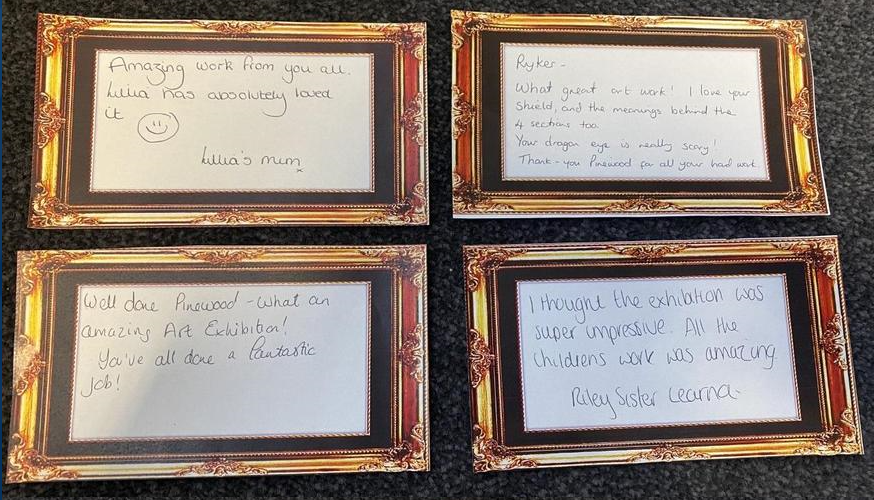 Amazing work from you all.
Lillia has absolutely loved
it
Lillia's mum
x
Ryker -
What great art work! I love your
shield, and the meanings behind the
4 sections too.
Your dragon eye is really scary!
Thank-you Pinewood for all your hard work
Well done Pinewood - what an
amazing Art Exhibition!
You've all done a fantastic
job!
I thought the exhibition was
super impressive. All the
childrens work was amazing
Riley Sister Learna